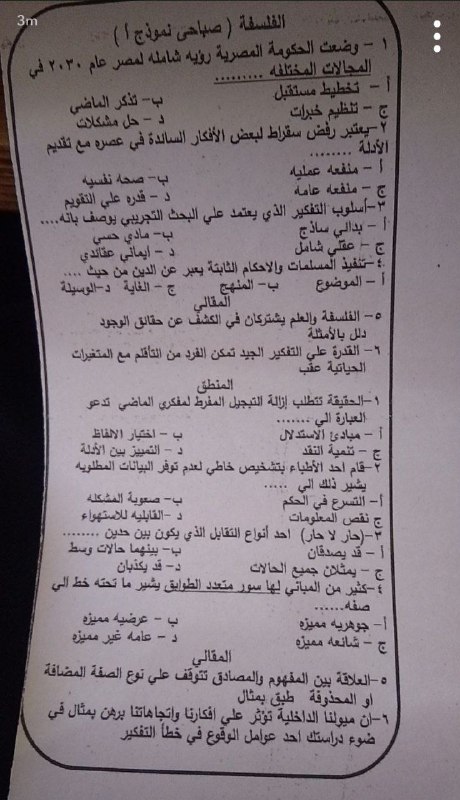 3m
الفلسفة ( صباحى نموذج أ )
١ – وضعت الحكومة المصرية رؤيه شامله لمصر عام ٢٠٣٠ في
المجالات المختلفه .........
أ – تخطيط مستقبل ب– تذكر الماضي
ج – تنظيم خبرات د – حل مشكلات
٢–يعتبر رفض سقراط لبعض الأفكار السائدة في عصره مع تقديم
الأدلة ........
أ – منفعه عمليه ب– صحه نفسيه
ج – منفعه عامه د – قدره علي التقويم
٣–أسلوب التفكير الذي يعتمد علي البحث التجريبي يوصف بانه....
أ – بدائي ساذج ب– مادي حسي
ج – عقلي شامل د – ايماني عقائدي
٤–تنفيذ المسلمات والاحكام الثابتة يعبر عن الدين من حيث ....
أ – الموضوع ب– المنهج ج – الغاية د–الوسيلة
المقالي
٥– الفلسفة والعلم يشتركان في الكشف عن حقائق الوجود
دلل بالأمثلة
٦– القدرة علي التفكير الجيد تمكن الفرد من التأقلم مع المتغيرات
الحياتية عقب
المنطق
١–الحقيقة تتطلب إزالة التبجيل المفرط لمفكري الماضي تدعو
العبارة الي .......
أ – مبادئ الاستدلال ب – اختيار الالفاظ
ج – تنمية النقد د – التمييز بين الأدلة
٢–قام احد الأطباء بتشخيص خاطي لعدم توفر البيانات المطلوبه
يشير ذلك الي .....
أ– التسرع في الحكم ب– صعوبة المشكله
ج نقص المعلومات د –القابليه للاستهواء
٣–(حار لا حار) احد أنواع التقابل الذي يكون بين حدين ........
أ – قد يصدقان ب– بينهما حالات وسط
ج – يمثلان جميع الحالات د– قد يكذبان
٤–كثير من المباني لها سور متعدد الطوابق يشير ما تحته خط الي
صفه......
أ– جوهريه مميزه ب – عرضيه مميزه
ج – شائعه مميزه د – عامه غير مميزه
المقالي
٥–العلاقة بين المفهوم والمصادق تتوقف علي نوع الصفة المضافة
او المحذوفة طبق بمثال
٦–ان ميولنا الداخلية تؤثر علي افكارنا واتجاهاتنا برهن بمثال في
ضوء دراستك احد عوامل الوقوع في خطأ التفكير